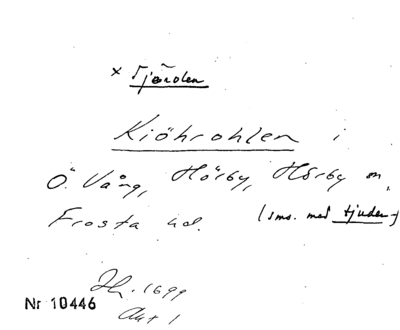 × Tjörolen
Kiöhrohlen i
Ö. Vång, Hörby, Hörby sn,
Frosta hd. (sms. med tjuder-)
Jb. 1699
Akt 1
Nr 10446